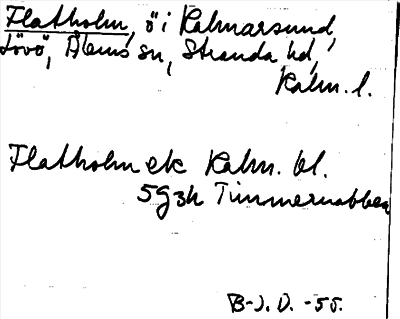 Flatholm, ö i Kalmarsund,
Lövö, Ålems sn, Stranda hd,
Kalm. l.
Flatholm ek Kalm. bl.
5G3h Timmernabben
B-J. D. -55.